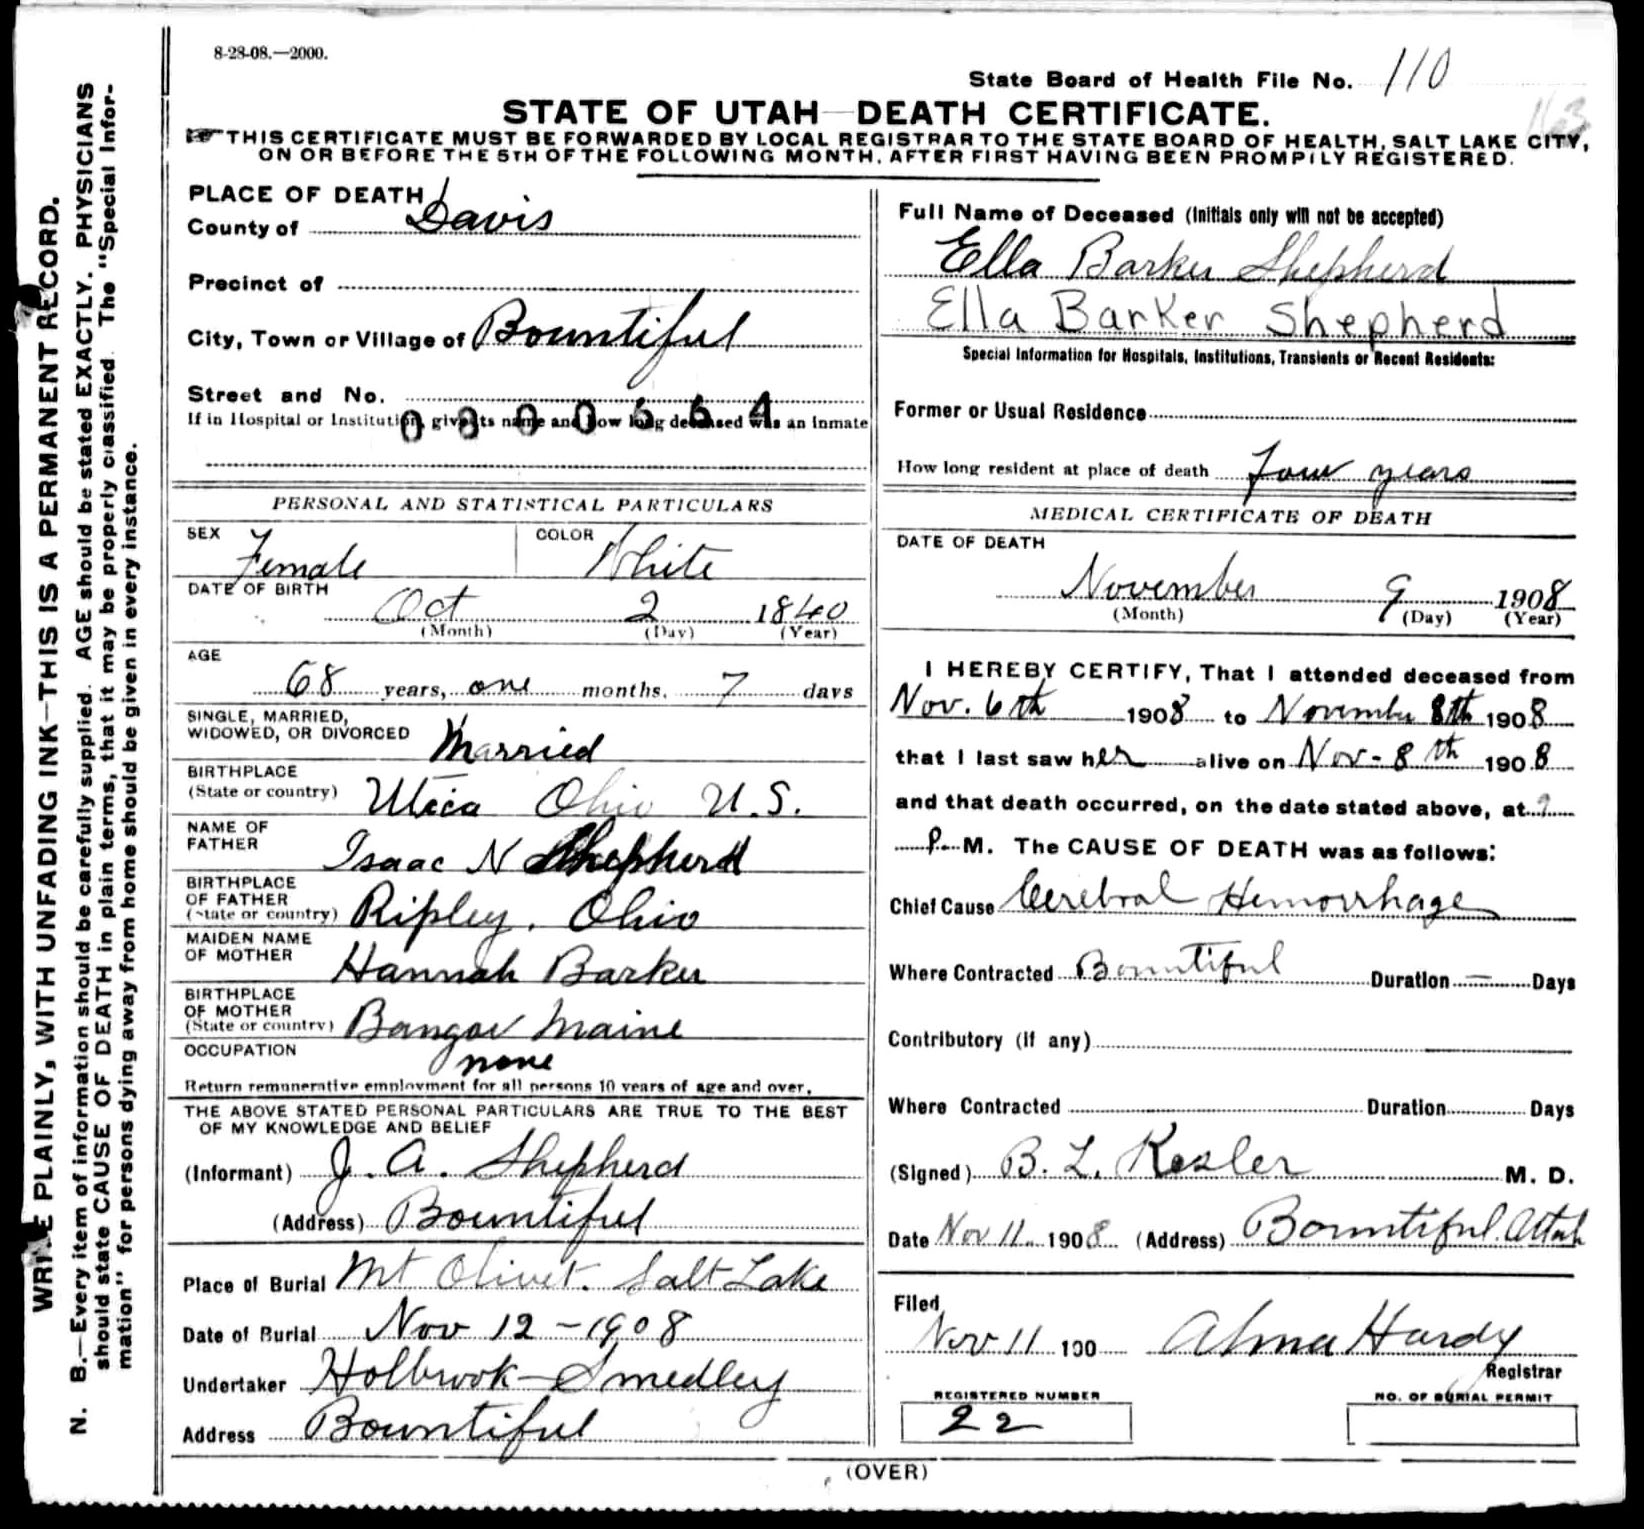 8-28-08.—2000.
State Board of Health File No. 110
STATE OF UTAH—DEATH CERTIFICATE.
163
☞ THIS CERTIFICATE MUST BE FORWARDED BY LOCAL REGISTRAR TO THE STATE BOARD OF HEALTH, SALT LAKE CITY,
ON OR BEFORE THE 5TH OF THE FOLLOWING MONTH, AFTER FIRST HAVING BEEN PROMPTLY REGISTERED.
WRITE PLAINLY, WITH UNFADING INK—THIS IS A PERMANENT RECORD.
N. B.—Every item of information should be carefully supplied. AGE should be stated EXACTLY. PHYSICIANS
should state CAUSE OF DEATH in plain terms, that it may be properly classified. The "Special Infor-
mation" for persons dying away from home should be given in every instance.
PLACE OF DEATH
County of Davis
Precinct of
City, Town or Village of Bountiful
Street and No.
If in Hospital or Institution, give its name and how long deceased was an Inmate
PERSONAL AND STATISTICAL PARTICULARS
SEX Female COLOR White
DATE OF BIRTH
Oct 2 1840
(Month) (Day) (Year)
AGE
68 years, one months, 7 days
SINGLE, MARRIED,
WIDOWED, OR DIVORCED Married
BIRTHPLACE
(State or country) Utica Ohio U.S.
NAME OF
FATHER Isaac N Shepherd
BIRTHPLACE
OF FATHER
(State or country) Ripley, Ohio
MAIDEN NAME
OF MOTHER Hannah Barker
BIRTHPLACE
OF MOTHER
(State or country) Bangor Maine
OCCUPATION none
Return remunerative employment for all persons 10 years of age and over.
THE ABOVE STATED PERSONAL PARTICULARS ARE TRUE TO THE BEST
OF MY KNOWLEDGE AND BELIEF
(Informant) J. A. Shepherd
(Address) Bountiful
Place of Burial Mt Olivet. Salt Lake
Date of Burial Nov 12 - 1908
Undertaker Holbrook - Smedley
Address Bountiful
Full Name of Deceased (Initials only will not be accepted)
Ella Barker Shepherd
Ella Barker Shepherd
Special Information for Hospitals, Institutions, Transients or Recent Residents:
Former or Usual Residence
How long resident at place of death four years
MEDICAL CERTIFICATE OF DEATH
DATE OF DEATH
November 9 1908
(Month) (Day) (Year)
I HEREBY CERTIFY, That I attended deceased from
Nov. 6th 1908 to November 8th 1908
that I last saw her alive on Nov - 8th 1908
and that death occurred, on the date stated above, at
P. M. The CAUSE OF DEATH was as follows:
Chief Cause Cerebral Hemorrhage
Where Contracted Bountiful Duration — Days
Contributory (if any)
Where Contracted Duration Days
(Signed) B. L. Kesler M. D.
Date Nov 11 1908 (Address) Bountiful. Utah
Filed
Nov 11 190 Alma Hardy
Registrar
REGISTERED NUMBER
22
NO. OF BURIAL PERMIT
(OVER)